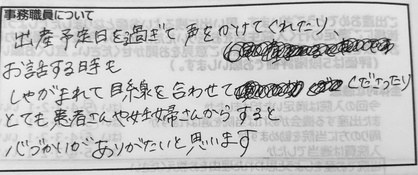 事務職員について
出産予定日を過ぎて声をかけてくれたり、
お話する時も
しゃがまれて目線を合わせて くださったり
とても患者さんや妊婦さんからすると
心づかいがありがたいと思います